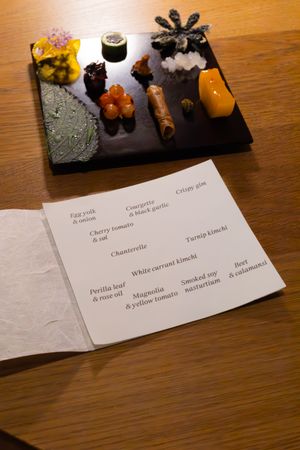 Egg yolk
& onion
Courgette
& black garlic
Crispy gim
Cherry tomato
& sui
Chanterelle
Turnip kimchi
White currant kimchi
Perilla leaf
& rose oil
Magnolia
& yellow tomato
Smoked soy
nasturtium
Beet
& calamansi